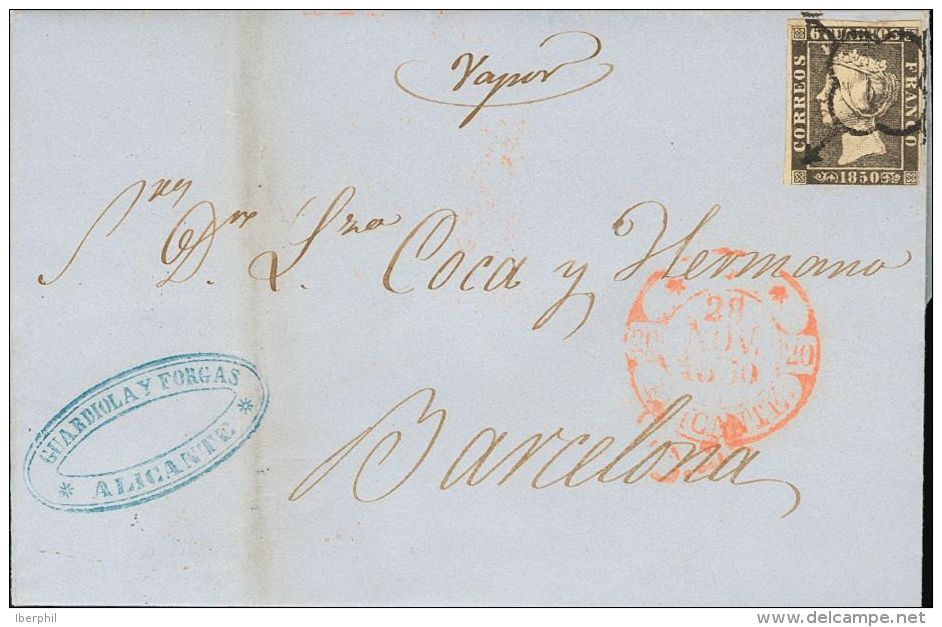 Vapor
6 CUARTOS
CORREOS
FRANCO
1850
Sres Dn Lzo Coca y Hermano
28
NOV.
1850
ALICANTE.
GUARDIOLA Y FORGAS
ALICANTE
Barcelona
Iberphil
www.delcampe.net